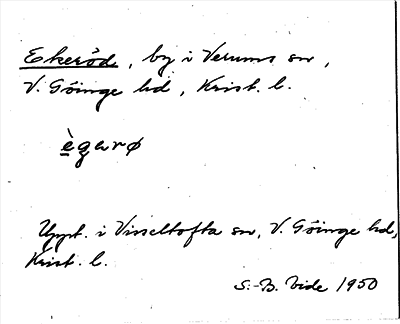 Ekeröd, by i Verums sn,
V. Göinge hd, Krist. l.
ègarø
Uppt. i Vinseltofta sn, V. Göinge hd,
Krist. l.
S.-B. Vide 1950